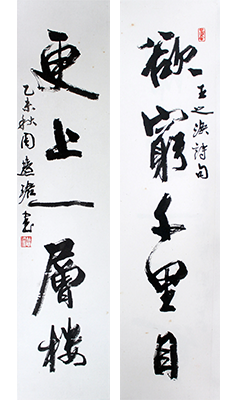 欲窮千里目
王之渙詩句
更上一層楼
乙未秋周